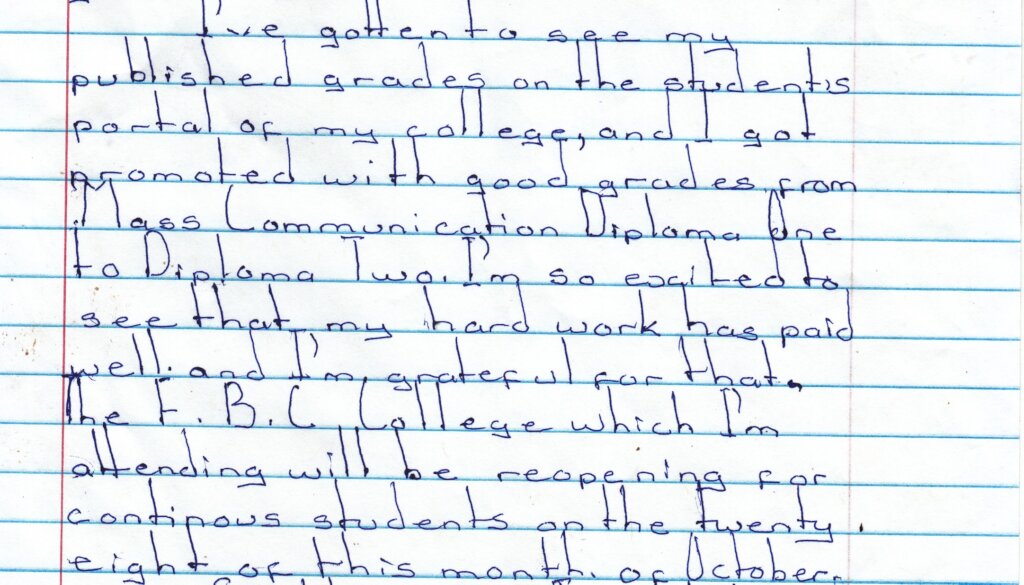 I've gotten to see my
published grades on the student's
portal of my college, and I got
promoted with good grades from
Mass Communication Diploma One
to Diploma Two. I'm so excited to
see that my hard work has paid
well. and I'm grateful for that.
The F.B.C College which I'm
attending will be reopening for
continous students on the twenty
eight of this month. of October.